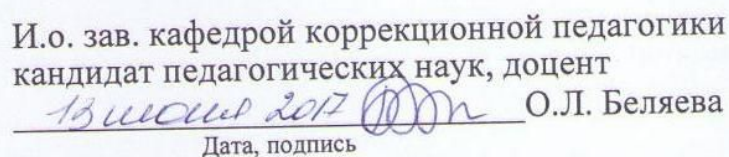 И.о. зав. кафедрой коррекционной педагогики
кандидат педагогических наук, доцент
13 июня 2017 О.Л. Беляева
Дата, подпись